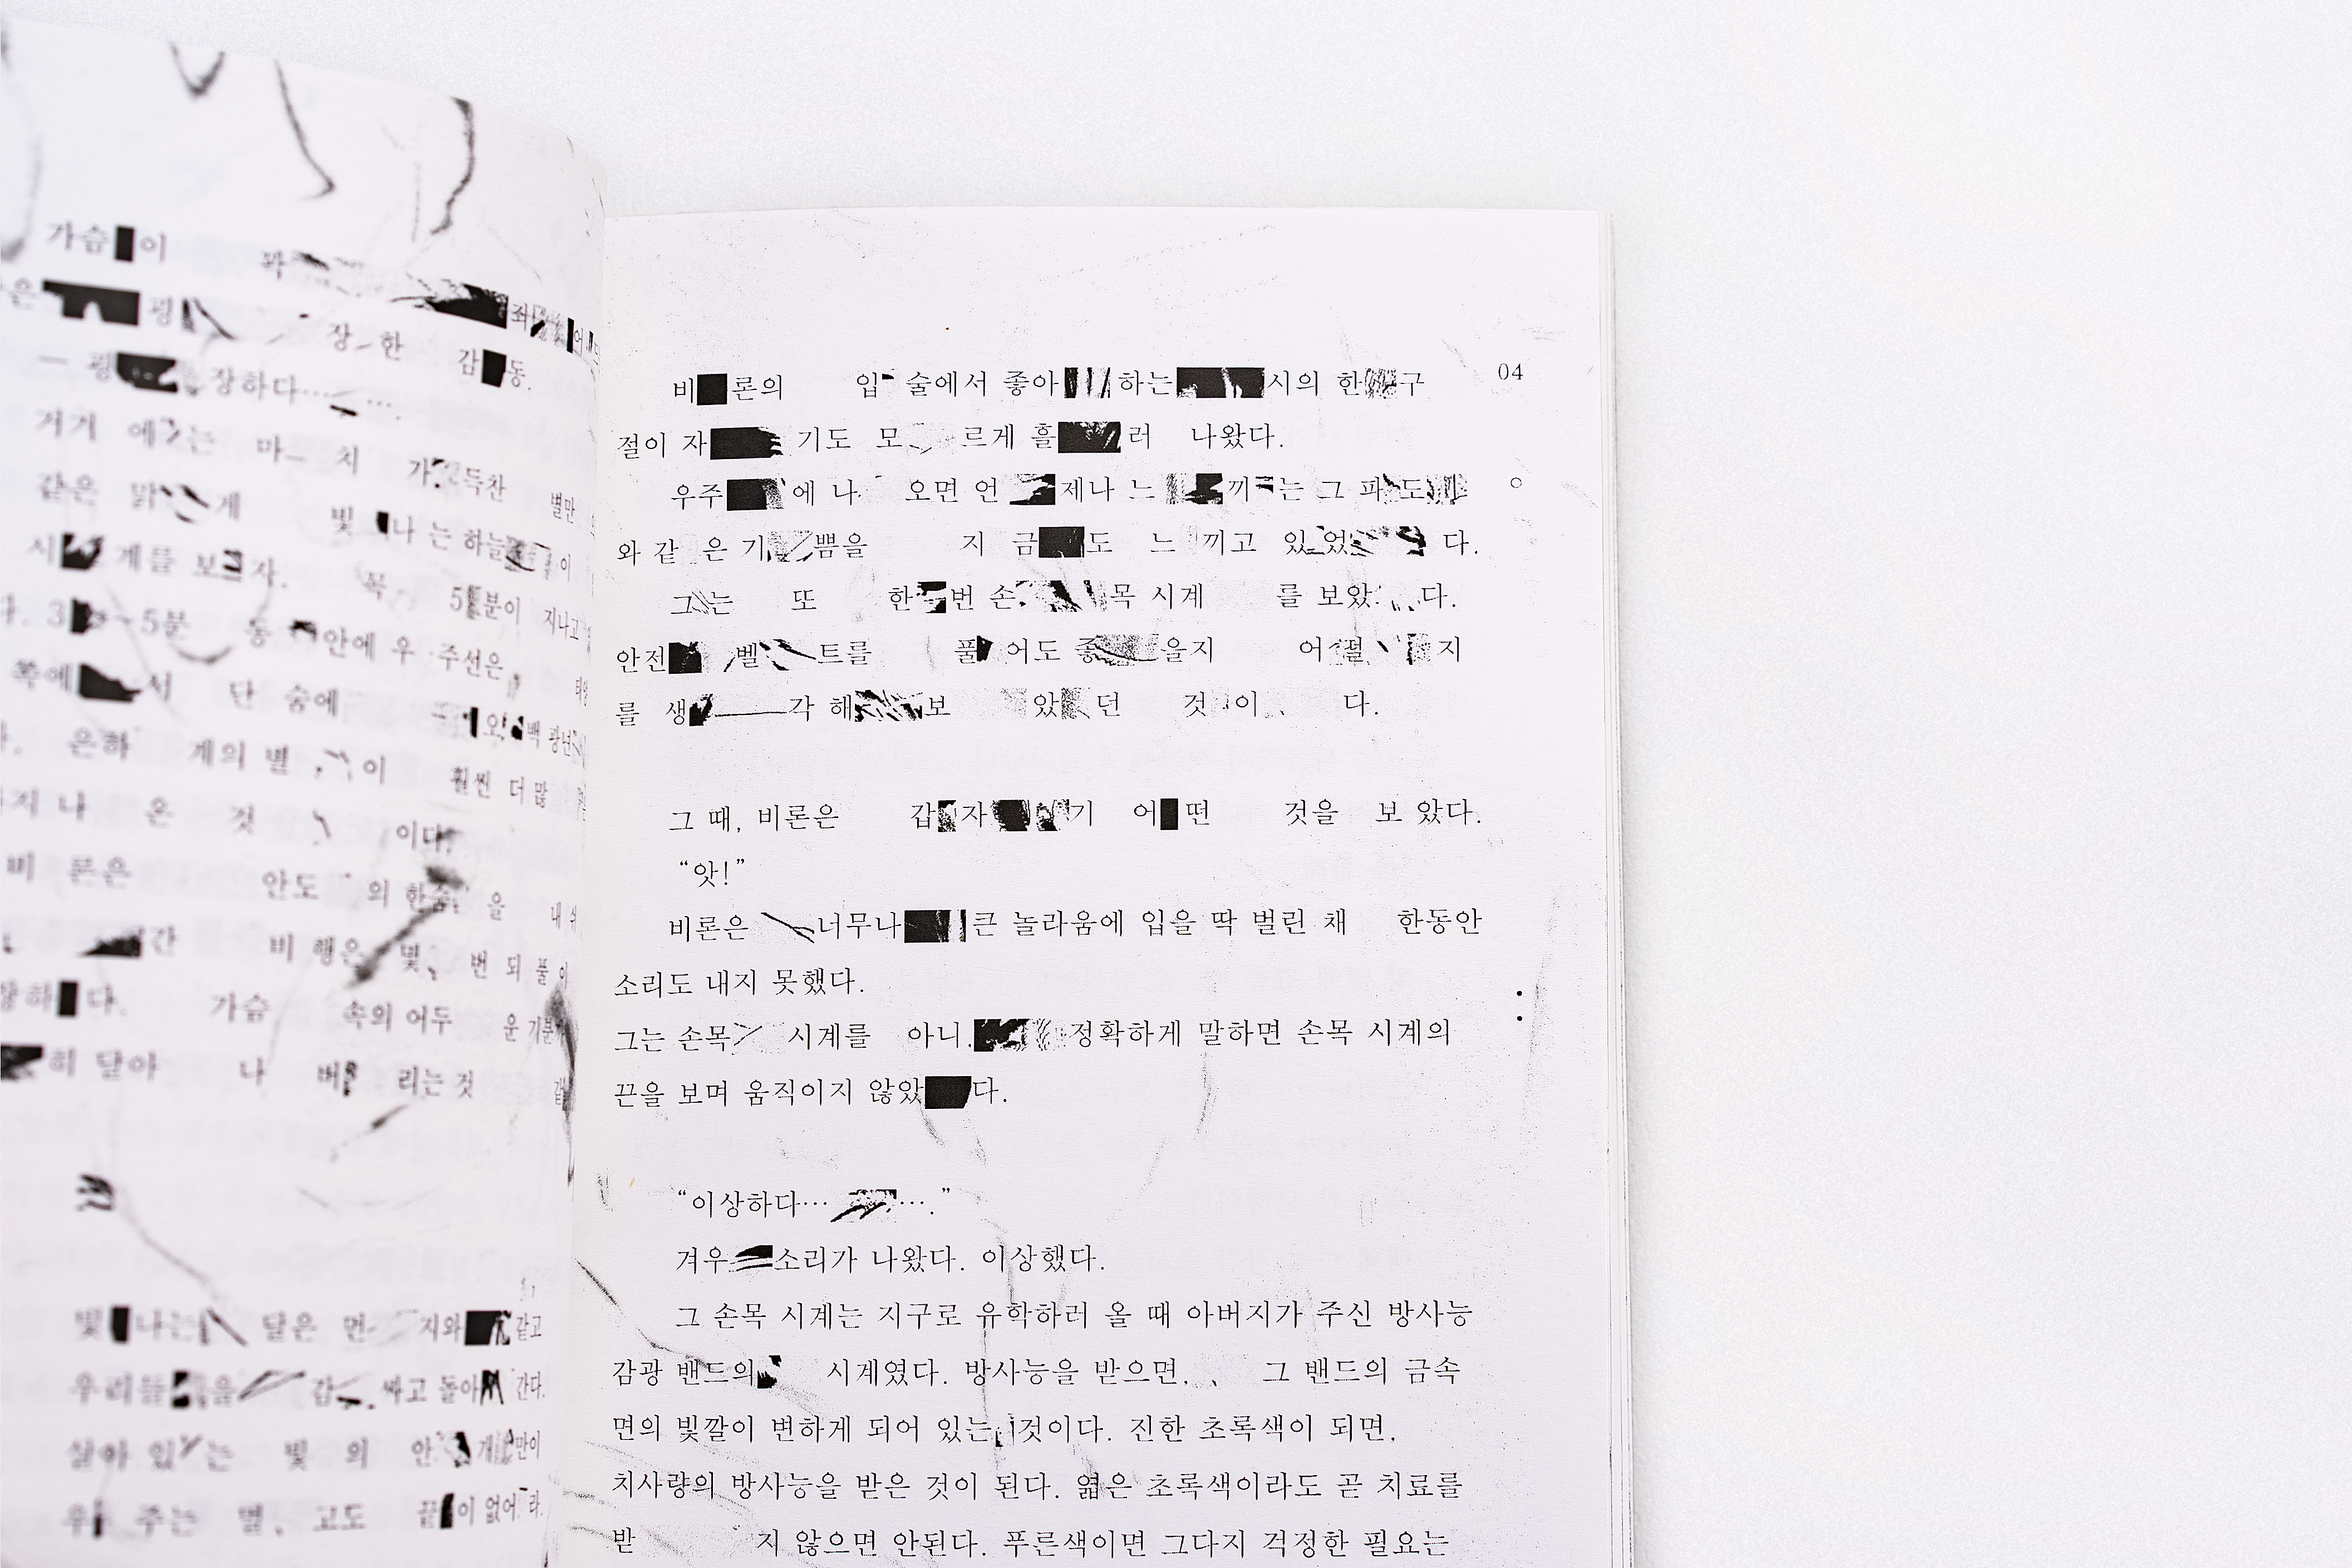 가슴 이 콰
은 굉 장 한 감 동.
— 굉 장하다… ….
거기 에 는 마 치 가 득찬 별만
같은 맑 게 빛 나 는 하늘 이
시 계를 보 자. 꼭 5 분이 지나고
3 5분 동 안에 우 주선은
쪽에 서 단 숨에 오 백 광년
은하 계의 별 이 훨씬 더 많
지 나 온 것 이다.
비 론은 안도 의 한숨 을 내 쉬
간 비 행은 몇 번 되 풀 이
하 다. 가슴 속의 어두 운 기분
히 달아 나 버 리는 것 같
빛 나는 달은 먼 지와 같고
우리들 을 감 싸고 돌아 간다.
살아 있 는 빛 의 안 개 만이
우 주는 멀 고도 끝 이 없어 라.
04
비 론의 입 술에서 좋아 하는 시의 한 구
절이 자 기도 모 르게 흘 러 나왔다.
우주 에 나 오면 언 제나 느 끼 는 그 파 도
와 같 은 기 쁨을 지 금 도 느 끼고 있 었 다.
그 는 또 한 번 손 목 시계 를 보았 다.
안전 벨 트를 풀 어도 좋 을지 어 떨 지
를 생 각 해 보 았 던 것 이 다.
그 때, 비론은 갑 자 기 어 떤 것을 보 았다.
“앗!”
비론은 너무나 큰 놀라움에 입을 딱 벌린 채 한동안
소리도 내지 못했다.
그는 손목 시계를 아니, 정확하게 말하면 손목 시계의
끈을 보며 움직이지 않았 다.
“이상하다… ….”
겨우 소리가 나왔다. 이상했다.
그 손목 시계는 지구로 유학하러 올 때 아버지가 주신 방사능
감광 밴드의 시계였다. 방사능을 받으면, 그 밴드의 금속
면의 빛깔이 변하게 되어 있는 것이다. 진한 초록색이 되면,
치사량의 방사능을 받은 것이 된다. 엷은 초록색이라도 곧 치료를
받 지 않으면 안된다. 푸른색이면 그다지 걱정한 필요는